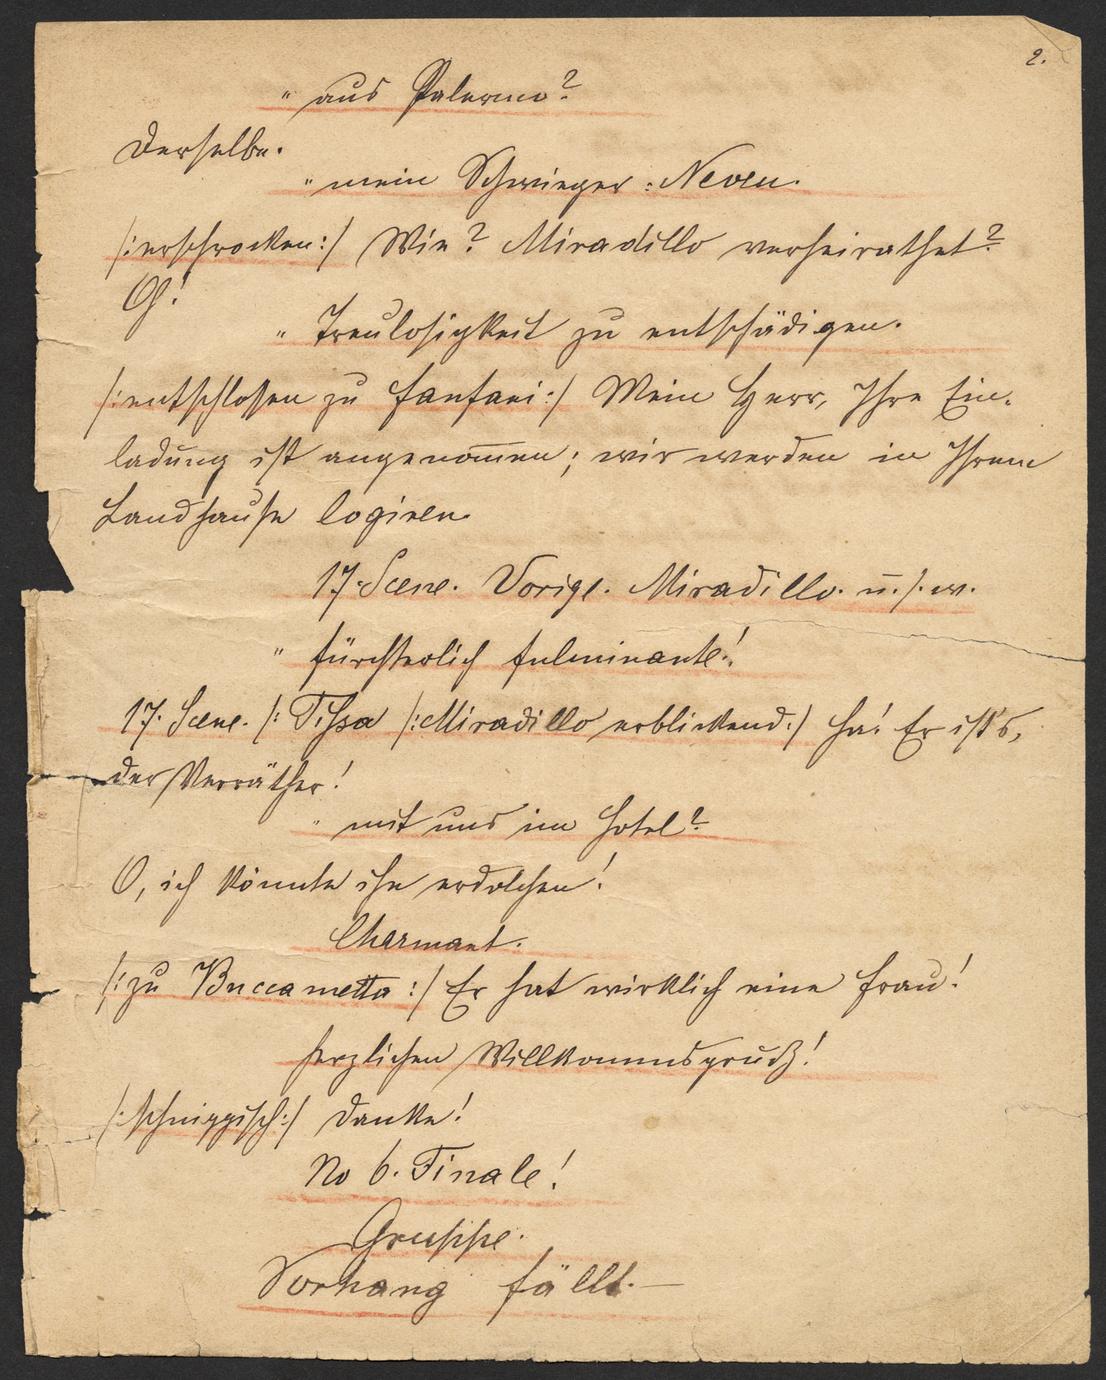 2.
" aus Palermo?
Derselbe.
" mein Schwieger-Neveu.
/:erschrocken:/ Wie? Miradillo verheirathet?
Oh!
" Treulosigkeit zu entschädigen.
/:entschlossen zu Fanfani:/ Mein Herr, Ihre Ein-
ladung ist angenom̅en; wir werden in Ihrem
Landhause logiren.
17. Scene. Vorige. Miradillo. u. s. w.
" fürchterlich fulminante!
17. Scene. /: Tissa /:Miradillo erblickend:/ Ha! Er ist's,
der Verräther!
" mit uns im Hotel?
O, ich könnte ihn erdolchen!
Charmant.
/:zu Buccametta:/ Er hat wirklich eine Frau!
herzlichen Willkommsgruß!
/:schnippisch:/ Danke!
No 6. Finale!
Gruppe.
Vorhang fällt.—